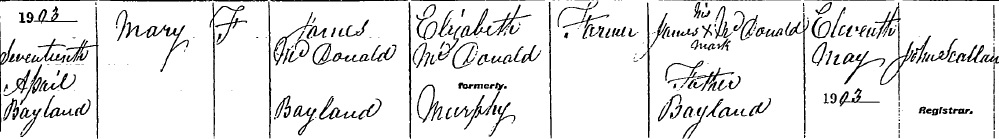 1903
Seventeenth
April
Bayland
Mary
F
James
McDonald
Bayland
Elizabeth
McDonald
formerly.
Murphy
Farmer
His
James X McDonald
mark
Father
Bayland
Eleventh
May
1903
John Scallan
Registrar.